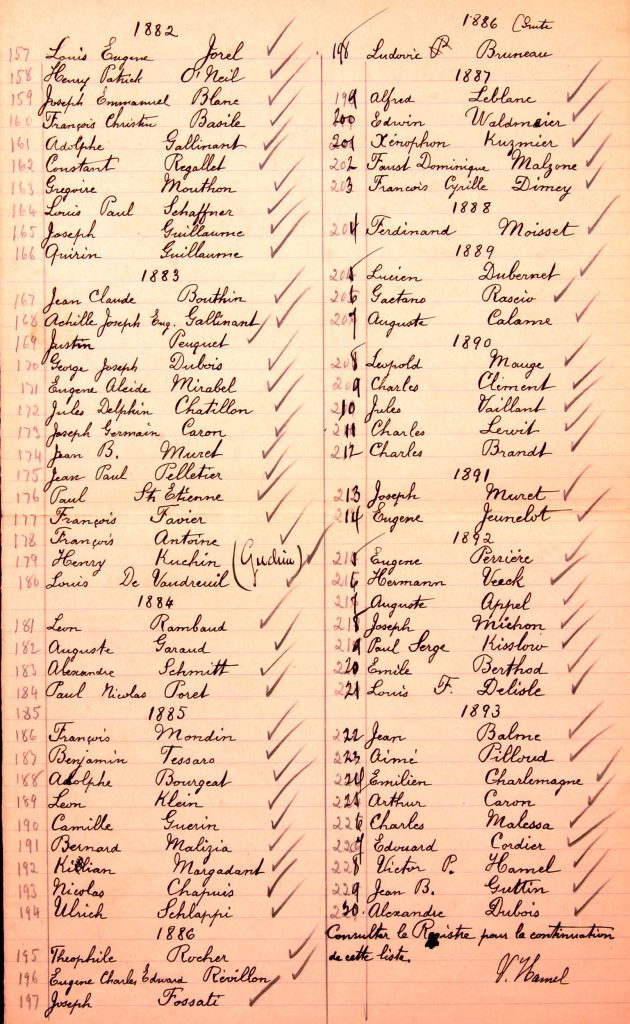 1882
157 Louis Eugene Jorel
158 Henry Patrick O'Neil
159 Joseph Emmanuel Blanc
160 François Christin Basile
161 Adolphe Gallinant
162 Constant Regallet
163 Gregoire Mouthon
164 Louis Paul Schaffner
165 Joseph Guillaume
166 Quirin Guillaume
1883
167 Jean Claude Bouthin
168 Achille Joseph Eug. Gallinant
169 Justin Peuquet
170 George Joseph Dubois
171 Eugene Alcide Mirabel
172 Jules Delphin Chatillon
173 Joseph Germain Caron
174 Jean B. Muret
175 Jean Paul Pelletier
176 Paul St Etienne
177 François Favier
178 François Antoine
179 Henry Kuchin
180 Louis De Vaudreuil
1884
181 Leon Rambaud
182 Auguste Garaud
183 Alexandre Schmitt
184 Paul Nicolas Poret
185 1885
186 François Mondin
187 Benjamin Tessaro
188 Adolphe Bourgeat
189 Leon Klein
190 Camille Guerin
191 Bernard Malizia
192 Killian Margadant
193 Nicolas Chapuis
194 Ulrich Schlappi
1886
195 Theophile Rocher
196 Eugene Charles Edward Revillon
197 Joseph Fossati
1886 (Suite
198 Ludovic P Bruneau
1887
199 Alfred Leblanc
200 Edwin Waldmeier
201 Xénophon Kuzmier
202 Faust Dominique Malzone
203 Francois Cyrille Dimey
1888
204 Ferdinand Moisset
1889
205 Lucien Dubernet
206 Gaetano Rascio
207 Auguste Calame
1890
208 Leopold Mauge
209 Charles Climent
210 Jules Vaillant
211 Charles Lewit
212 Charles Brandt
1891
213 Joseph Muret
214 Eugene Jeunelot
1892
215 Eugene Perrière
216 Hermann Veeck
217 Auguste Appel
218 Joseph Michon
219 Paul Serge Kisslow
220 Emile Berthod
221 Louis F. Delisle
1893
222 Jean Balme
223 Aimé Pilloud
224 Emilien Charlemagne
225 Arthur Caron
226 Charles Malessa
227 Edouard Cordier
228 Victor P. Hamel
229 Jean B. Guttin
230 Alexandre Dubois
Consulter le Registre pour la continuation
de cette liste.
V. Hamel